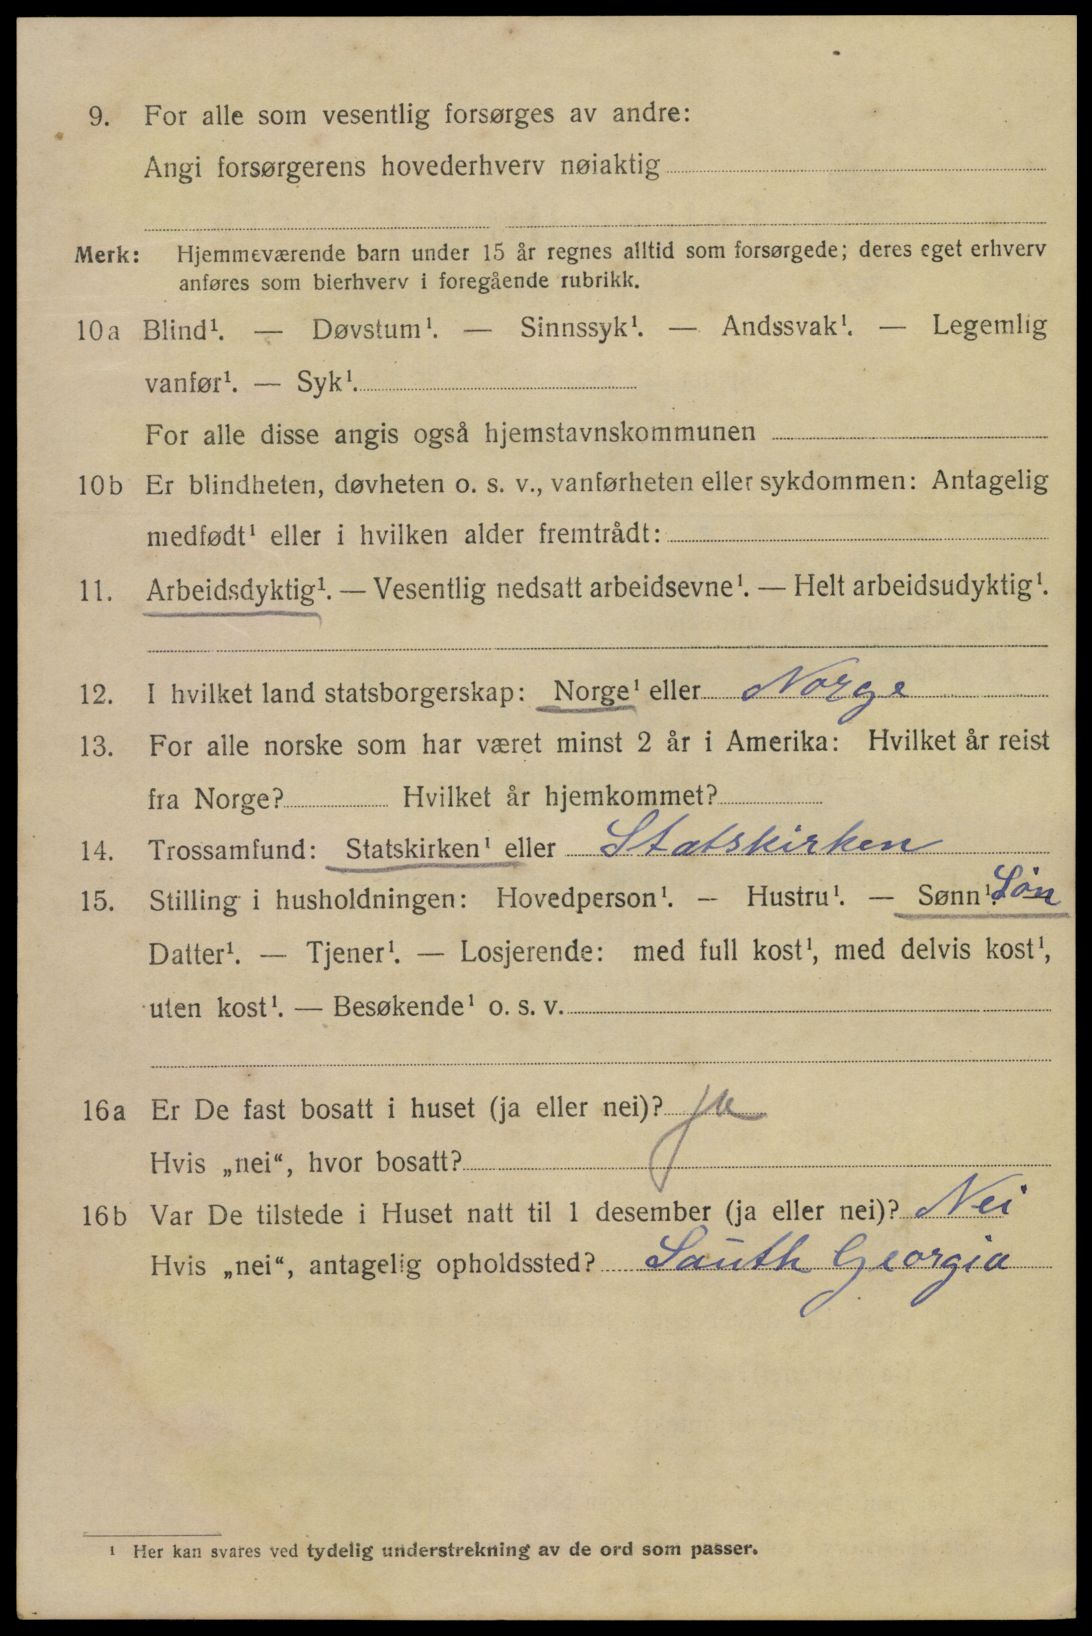 9. For alle som vesentlig forsørges av andre:
Angi forsørgerens hovederhverv nøiaktig
Merk: Hjemmeværende barn under 15 år regnes alltid som forsørgede; deres eget erhverv
anføres som bierhverv i foregående rubrikk.
10a Blind¹. — Døvstum¹. — Sinnssyk¹. — Andssvak¹. — Legemlig
vanfør¹. — Syk¹.
For alle disse angis også hjemstavnskommunen
10b Er blindheten, døvheten o. s. v., vanførheten eller sykdommen: Antagelig
medfødt¹ eller i hvilken alder fremtrådt:
11. Arbeidsdyktig¹. — Vesentlig nedsatt arbeidsevne¹. — Helt arbeidsudyktig¹.
12. I hvilket land statsborgerskap: Norge¹ eller Norge
13. For alle norske som har været minst 2 år i Amerika: Hvilket år reist
fra Norge? Hvilket år hjemkommet?
14. Trossamfund: Statskirken¹ eller Statskirken
15. Stilling i husholdningen: Hovedperson¹. — Hustru¹. — Sønn¹. Søn
Datter¹. — Tjener¹. — Losjerende: med full kost¹, med delvis kost¹,
uten kost¹. — Besøkende¹ o. s. v.
16a Er De fast bosatt i huset (ja eller nei)? Ja
Hvis „nei“, hvor bosatt?
16b Var De tilstede i Huset natt til 1 desember (ja eller nei)? Nei
Hvis „nei“, antagelig opholdssted? Sauth Georgia
¹ Her kan svares ved tydelig understrekning av de ord som passer.